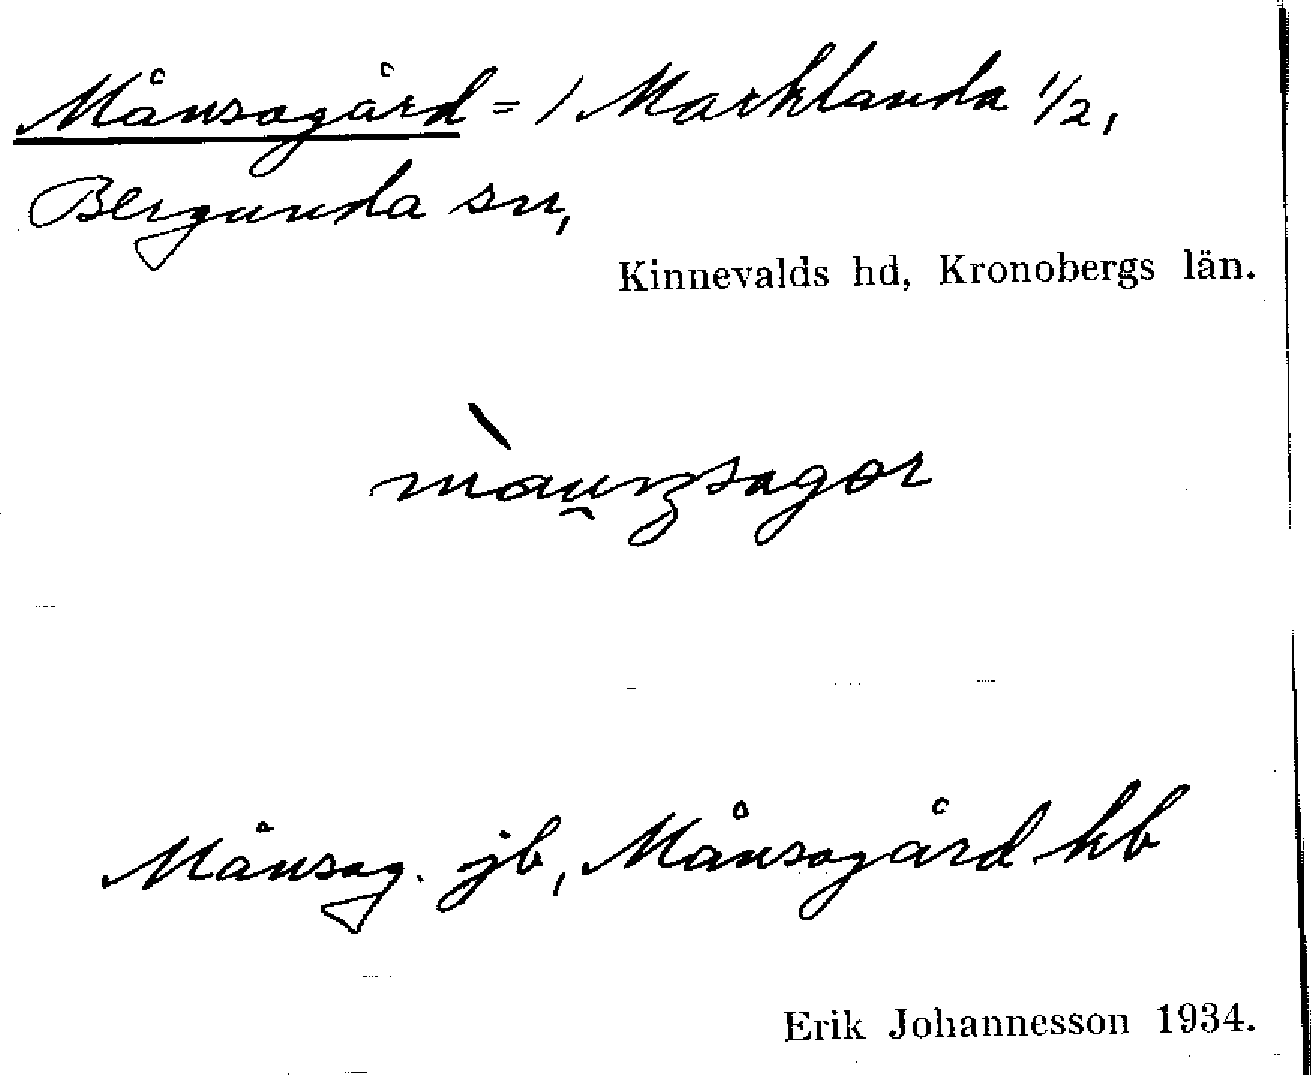 Månsagård = / Marklanda 1/2,
Bergunda sn,
Kinnevalds hd, Kronobergs län.
Månsag. jb, Månsagård kb
Erik Johannesson 1934.